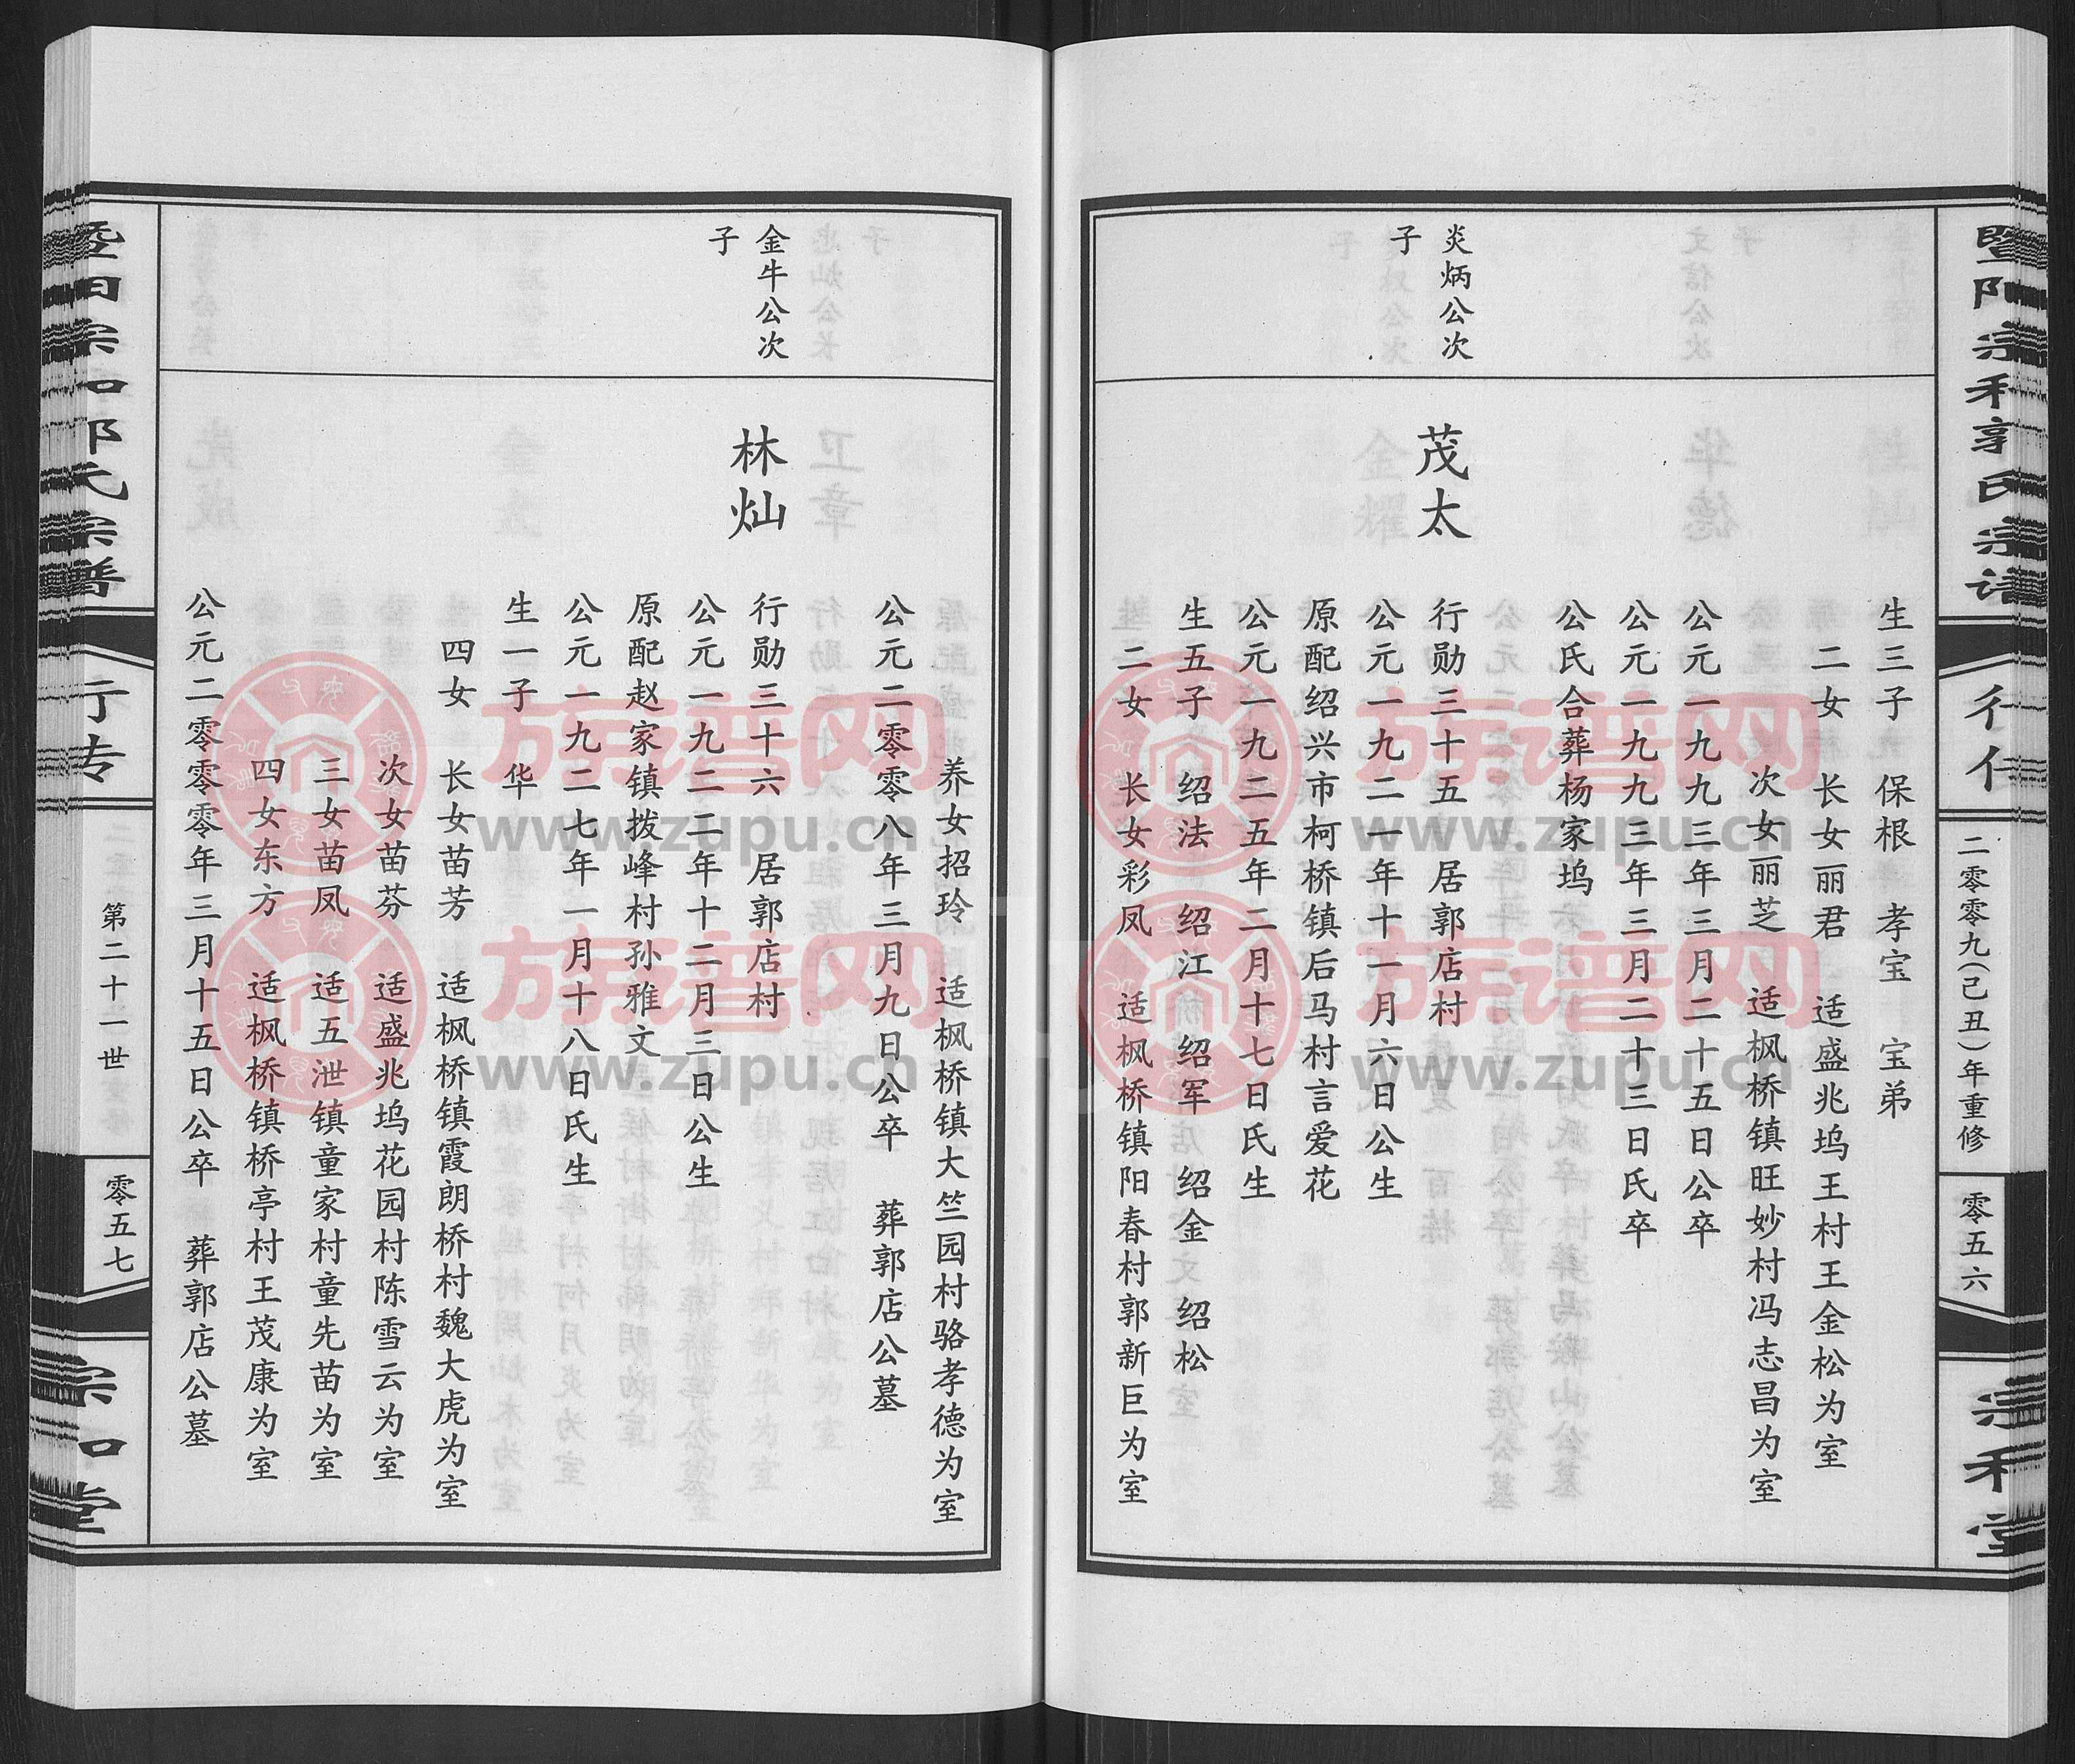 暨阳宗和郭氏宗谱
行传
二零零九(己丑)年重修
零五六
宗和堂
生三子 保根 孝宝 宝弟
二女 长女丽君 适盛兆坞王村王金松为室
次女丽芝 适枫桥镇旺妙村冯志昌为室
公元一九九三年三月二十五日公卒
公元一九九三年三月二十三日氏卒
公氏合葬杨家坞
炎炳公次
子
茂太
行勋三十五 居郭店村
公元一九二一年十一月六日公生
原配绍兴市柯桥镇后马村言爱花
公元一九二五年二月十七日氏生
生五子 绍法 绍江 绍军 绍金 绍松
二女 长女彩凤 适枫桥镇阳春村郭新巨为室
养女招玲 适枫桥镇大竺园村骆孝德为室
公元二零零八年三月九日公卒 葬郭店公墓
金牛公次
子
林灿
行勋三十六 居郭店村
公元一九二二年十二月三日公生
原配赵家镇拨峰村孙雅文
公元一九二七年一月十八日氏生
生一子 华
四女 长女苗芳 适枫桥镇霞朗桥村魏大虎为室
次女苗芬 适盛兆坞花园村陈雪云为室
三女苗凤 适五泄镇童家村童先苗为室
四女东方 适枫桥镇桥亭村王茂康为室
公元二零零零年三月十五日公卒 葬郭店公墓
暨阳宗和郭氏宗谱
行传
第二十一世
零五七
宗和堂
族谱网
www.zupu.cn
族谱网
www.zupu.cn
族谱网
www.zupu.cn
族谱网
www.zupu.cn